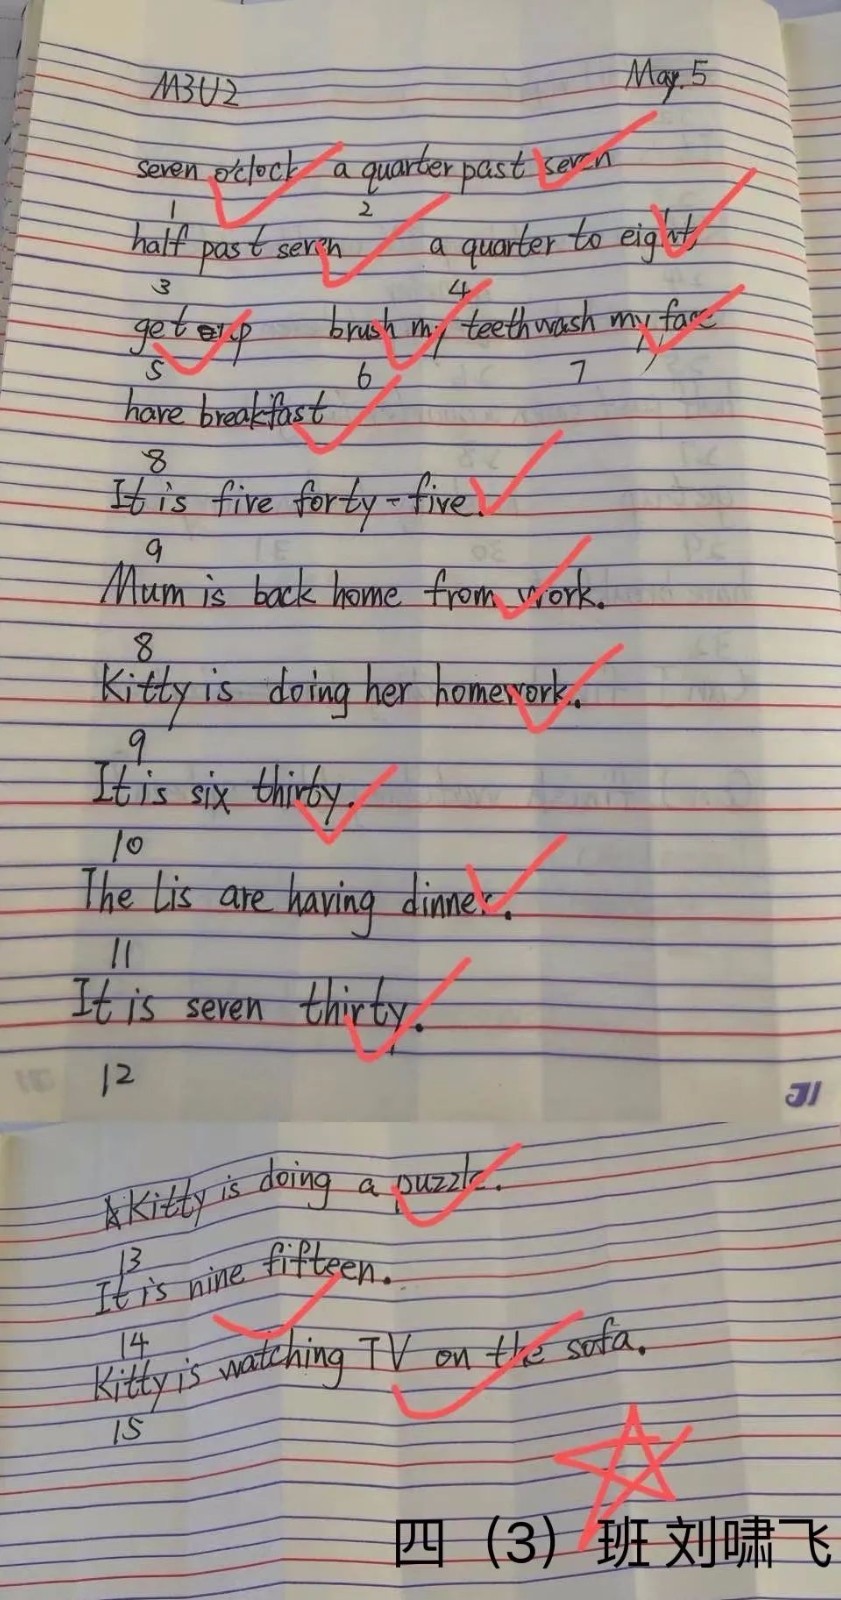 M3U2 May. 5
seven o'clock a quarter past seven
1 2
half past seven a quarter to eight
3 4
get up brush my teeth wash my face
5 6 7
have breakfast
8
It is five forty-five.
9
Mum is back home from work.
8
Kitty is doing her homework.
9
It is six thirty.
10
The Lis are having dinner.
11
It is seven thirty.
12
Kitty is doing a puzzle.
13
It is nine fifteen.
14
Kitty is watching TV on the sofa.
15
四（3）班 刘啸飞